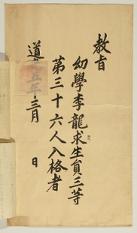 教旨
幼學李龍求生員三等
第三十六人入格者
道光五年三月 日